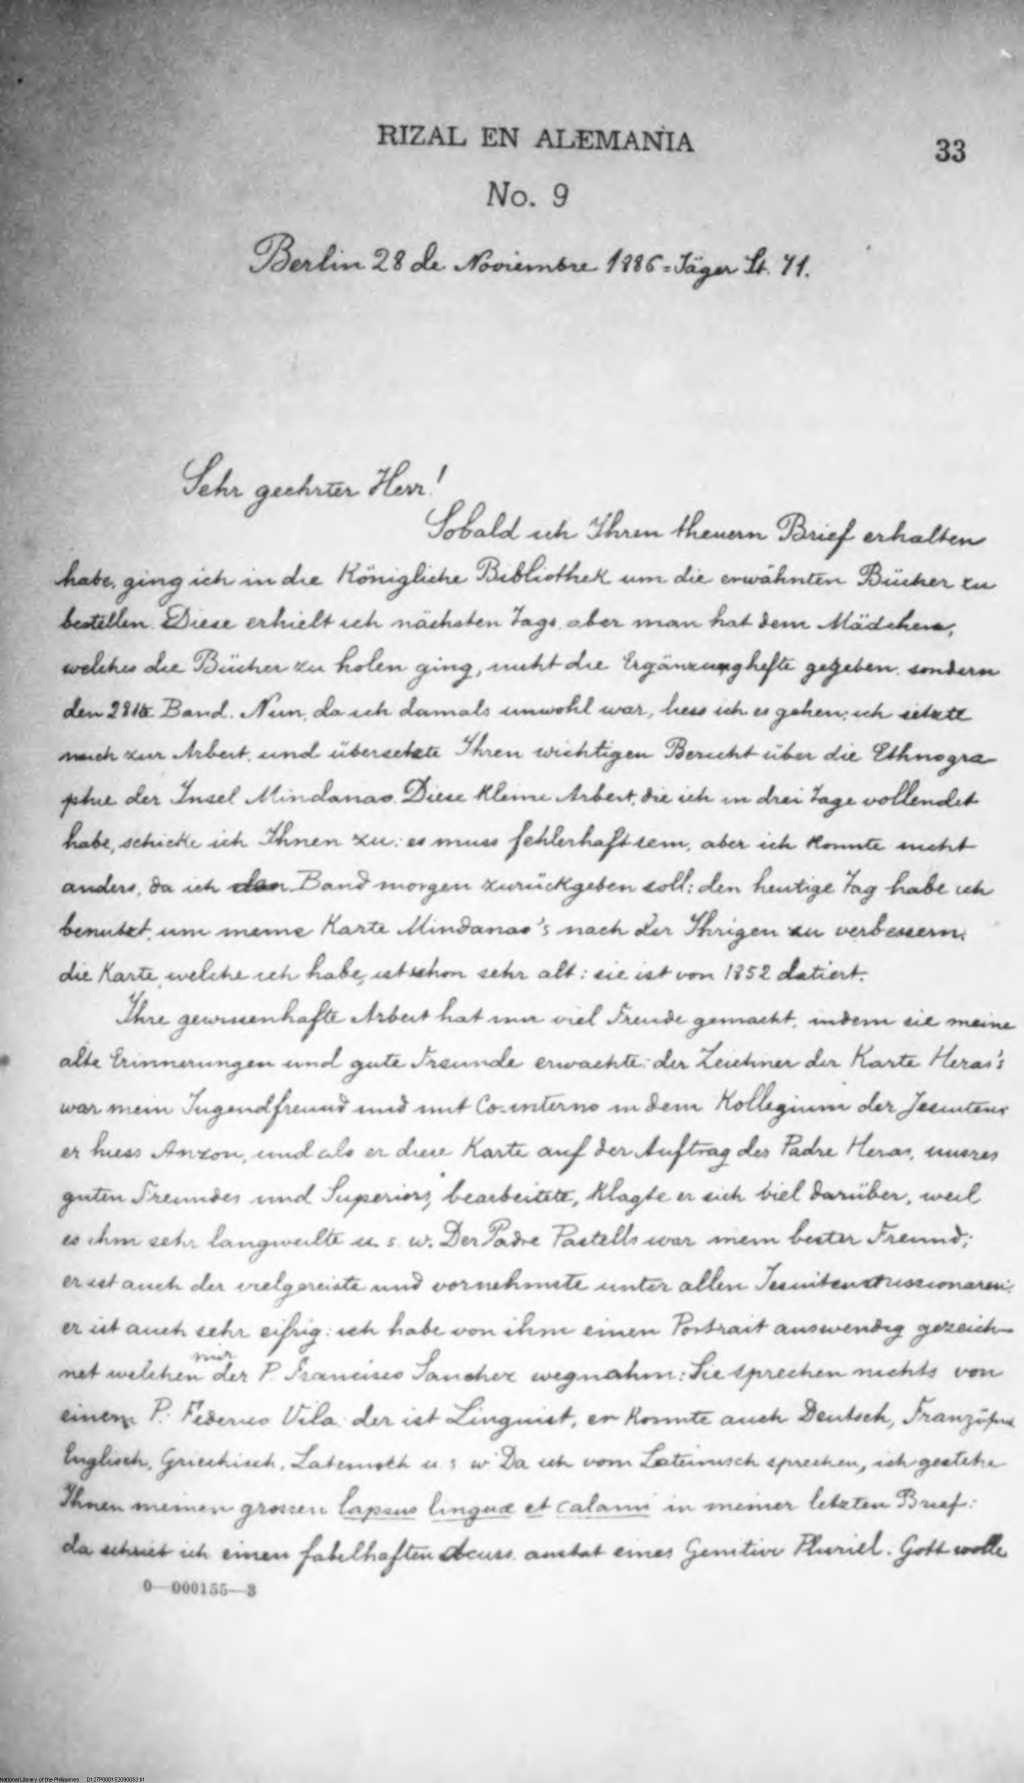 RIZAL EN ALEMANIA
33
No. 9
Berlin 28 de Noviembre 1886 = Jäger St. 71.
Sehr geehrter Herr!
Sobald ich Ihren theuern Brief erhalten
habe, ging ich in die Königliche Bibliothek um die erwähnten Bücher zu
bestellen. Diese erhielt ich nächsten Tags, aber man hat dem Mädchen,
welches die Bücher zu holen ging, nicht die Ergänzunghefte gegeben, sondern
den Band. Nun, da ich damals unwohl war, liess ich es gehen; ich setzte
mich zur Arbeit, und übersetzte Ihren wichtigen Bericht über die Ethnogra
phie der Insel Mindanao. Diese kleine Arbeit, die ich in drei Tage vollendet
habe, schicke ich Ihnen zu: es muss fehlerhaft sein, aber ich konnte nicht
anders, da ich den Band morgen zurückgeben soll: den heutige Tag habe ich
benutzt, um meine Karte Mindanao's nach der Ihrigen zu verbessern;
die Karte, welche ich habe, ist schon sehr alt: sie ist von 1852 datiert.
Ihre gewissenhafte Arbeit hat mir viel Freude gemacht, indem sie meine
alte Erinnerungen und gute Freunde erwachte: der Zeichner der Karte Heras's
war mein Jugendfreund und mit Co-interno in dem Kollegium der Jesuiten;
er hiess Anzon, und als er diese Karte auf der Auftrag des Padre Heras, unsres
guten Freundes und Superiors, bearbeitete, klagte er sich viel darüber, weil
es ihm sehr langweilte u. s. w. Der Padre Pastells war mein bester Freund;
er ist auch der vielgereiste und vornehmste unter allen Jesuitenmissionaren;
er ist auch sehr eifrig: ich habe von ihm einen Portrait auswendig gezeich-
net welchen mir der P. Francisco Sanchez wegnahm: Sie sprechen nichts von
einem P. Federico Vila: der ist Linguist, er konnte auch Deutsch,
Englisch, Griechisch, Lateinisch u. s. w. Da ich vom Lateinisch sprechen, ich gestehe
Ihnen meinen grossen lapsus linguæ et calami in meiner letzten Brief:
da schrieb ich einen fabelhaften Acuss. anstat eines Genitiv Pluriel. Gott wolle
0—000155—3
National Library of the Philippines